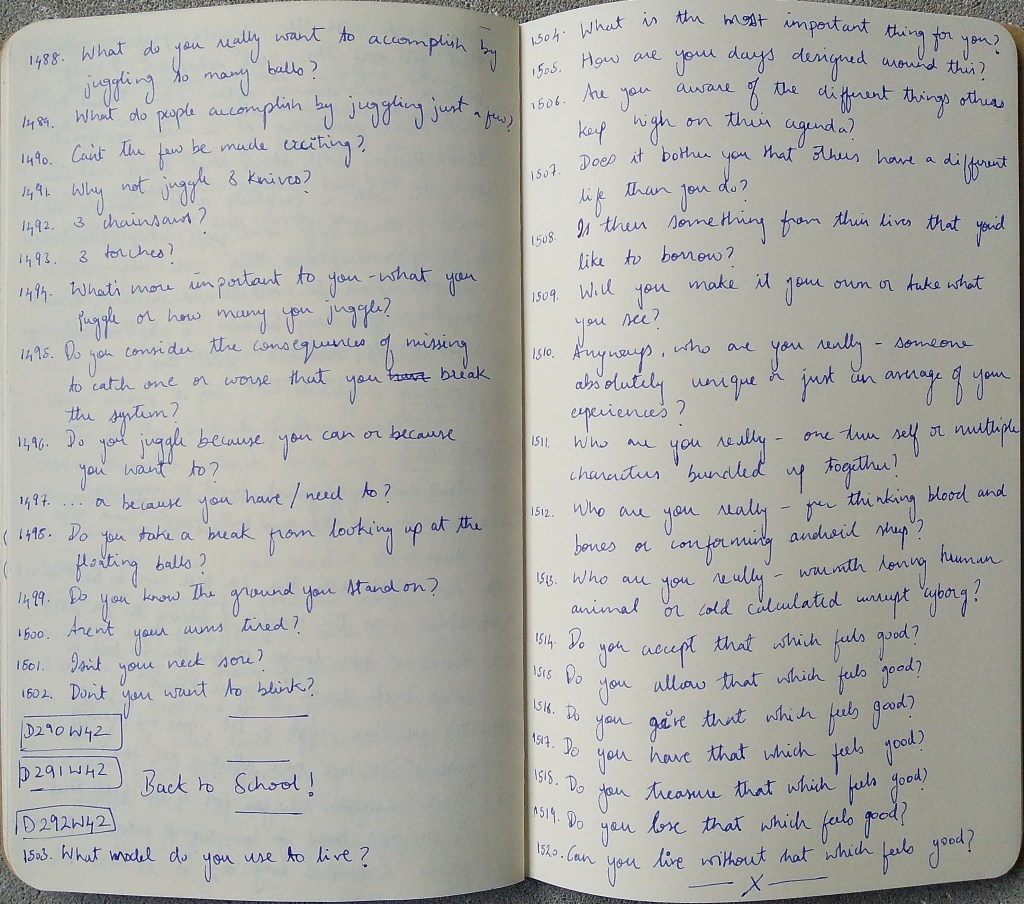 1488. What do you really want to accomplish by
juggling so many balls?
1489. What do people accomplish by juggling just a few?
1490. Can't the few be made exciting?
1491. Why not juggle 3 knives?
1492. 3 chainsaws?
1493. 3 torches?
1494. What's more important to you - what you
juggle or how many you juggle?
1495. Do you consider the consequences of missing
to catch one or worse that you have break
the system?
1496. Do you juggle because you can or because
you want to?
1497. ... or because you have / need to?
1498. Do you take a break from looking up at the
floating balls?
1499. Do you know the ground you stand on?
1500. Aren't your arms tired?
1501. Isn't your neck sore?
1502. Don't you want to blink?
D290W42
D291W42 Back to School!
D292W42
1503. What model do you use to live?
1504. What is the most important thing for you?
1505. How are your days designed around this?
1506. Are you aware of the different things others
keep high on their agenda?
1507. Does it bother you that others have a different
life than you do?
1508. Is there something from their lives that you'd
like to borrow?
1509. Will you make it your own or take what
you see?
1510. Anyways, who are you really - someone
absolutely unique or just an average of your
experiences?
1511. Who are you really - one true self or multiple
characters bundled up together?
1512. Who are you really - free thinking blood and
bones or conforming android sheep?
1513. Who are you really - warmth loving human
animal or cold calculated corrupt cyborg?
1514. Do you accept that which feels good?
1515 Do you allow that which feels good?
1516. Do you give that which feels good?
1517. Do you have that which feels good?
1518. Do you treasure that which feels good?
1519. Do you lose that which feels good?
1520. Can you live without that which feels good?
X